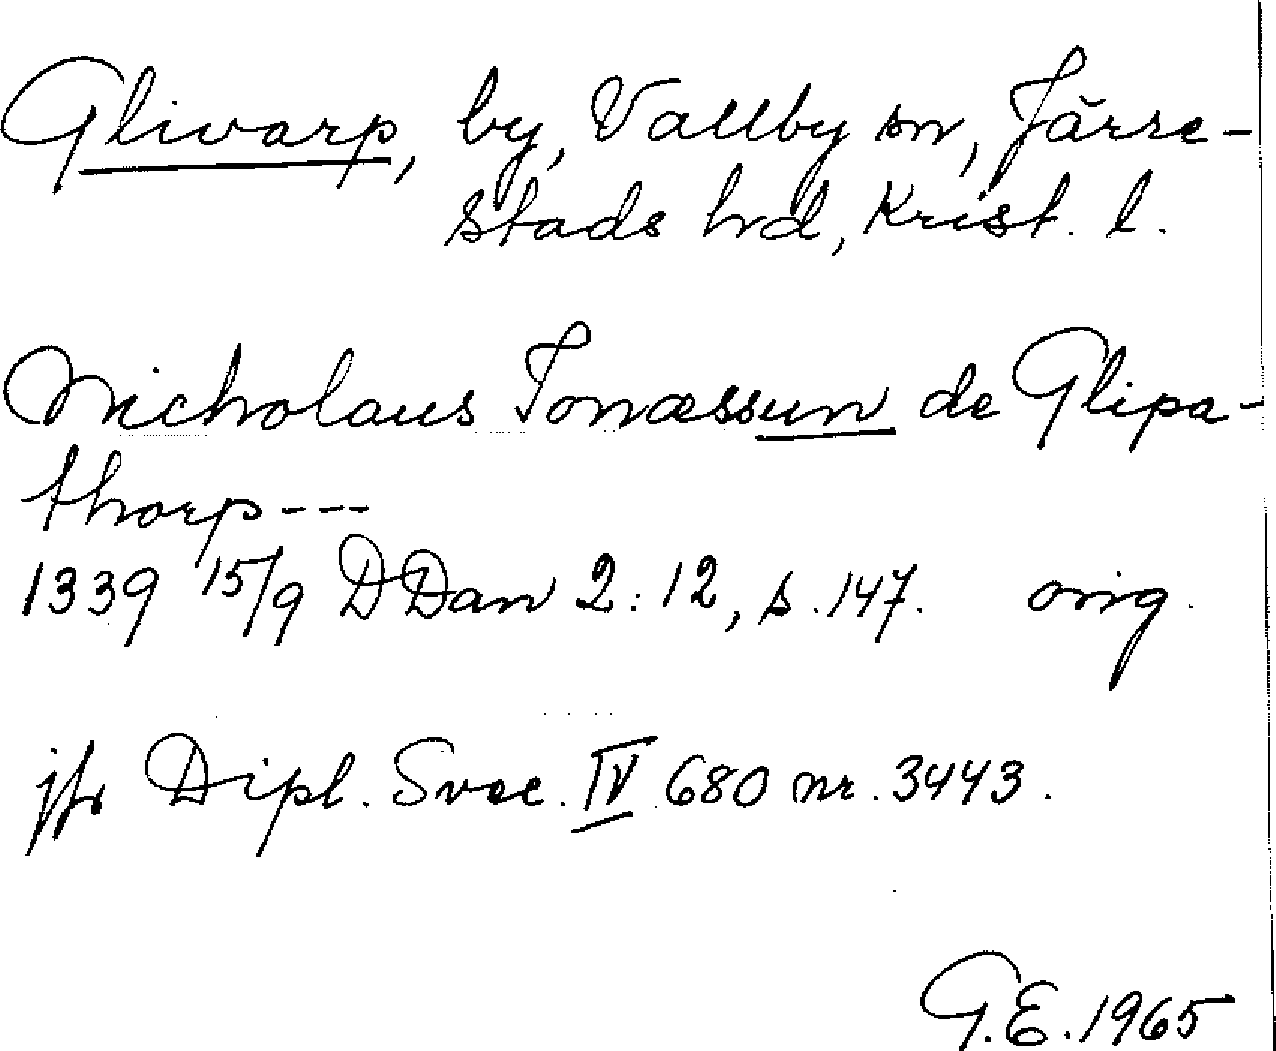 Glivarp, by, Vallby sn, Järre-
stads hrd, Krist. l.
Nicholaus Jonæssun de Glipa-
thorp---
1339 15/9 DDan 2:12, s. 147. orig.
jfr Dipl. Svec. IV 680 nr. 3443.
G.E. 1965